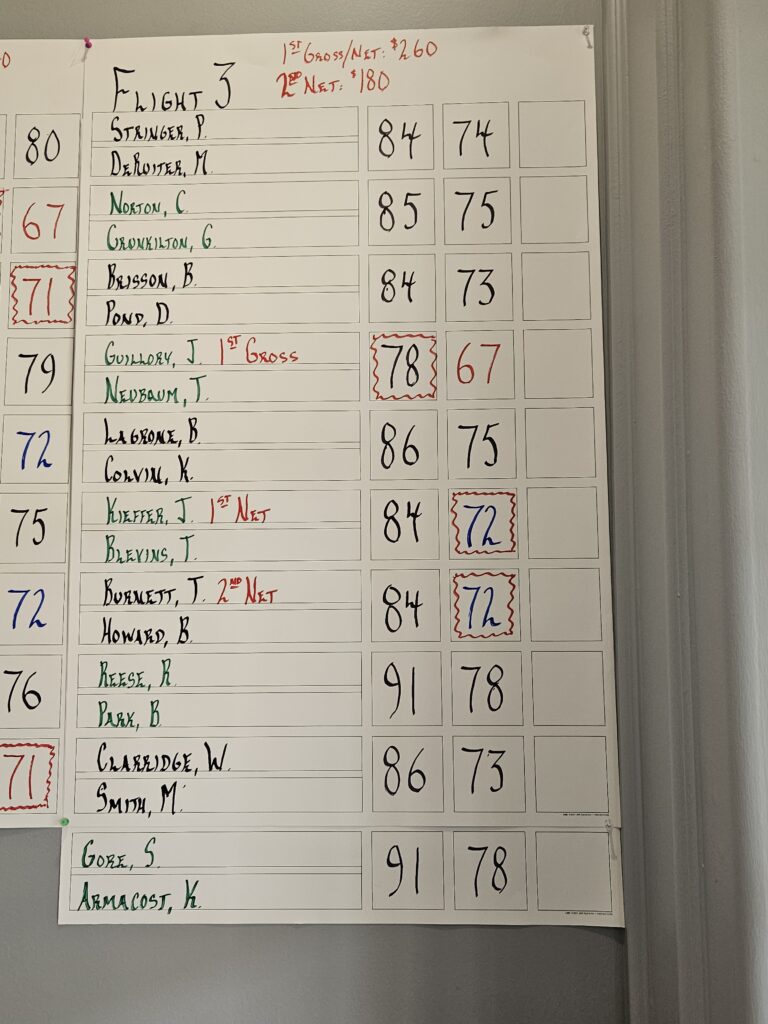 0
80
67
71
79
72
75
72
76
71
Flight 3
1st Gross/Net: $260
2nd Net: $180
Stringer, P.
DeRuiter, M
84 74
Norton, C
Cronkilton, G.
85 75
Brisson, B.
Pond, D.
84 73
Guillory, J. 1st Gross
Neubaum, T.
78 67
LaGrone, B.
Colvin, K.
86 75
Kieffer, J. 1st Net
Blevins, T.
84 72
Burnett, T. 2nd Net
Howard, B.
84 72
Reese, R
Park, B
91 78
Clarridge, W.
Smith, M.
86 73
Gore, S.
Armacost, K.
91 78